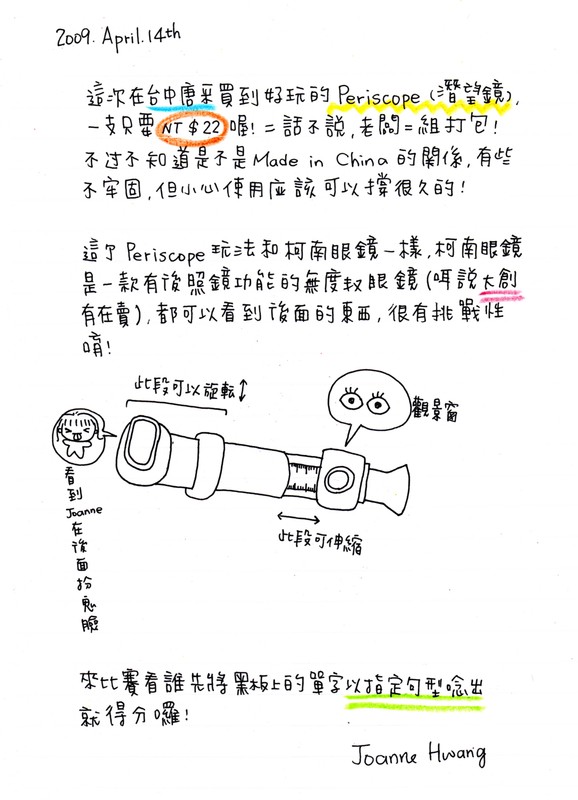 2009. April. 14th
這次在台中唐采買到好玩的 Periscope (潛望鏡),
一支只要 NT $ 22 喔! 二話不說, 老闆二組打包!
不过不知道是不是 Made in China 的關係, 有些
不牢固, 但小心使用应該可以撐很久的!
這了 Periscope 玩法和柯南眼鏡一樣, 柯南眼鏡
是一款有後照鏡功能的無度数眼鏡 (聽說大創
有在賣), 都可以看到後面的東西, 很有挑戰性
唷!
此段可以旋転
觀景窗
看到Joanne在後面扮鬼臉
此段可伸縮
來比賽看誰先將黑板上的單字以指定句型唸出
就得分囉!
Joanne Hwang